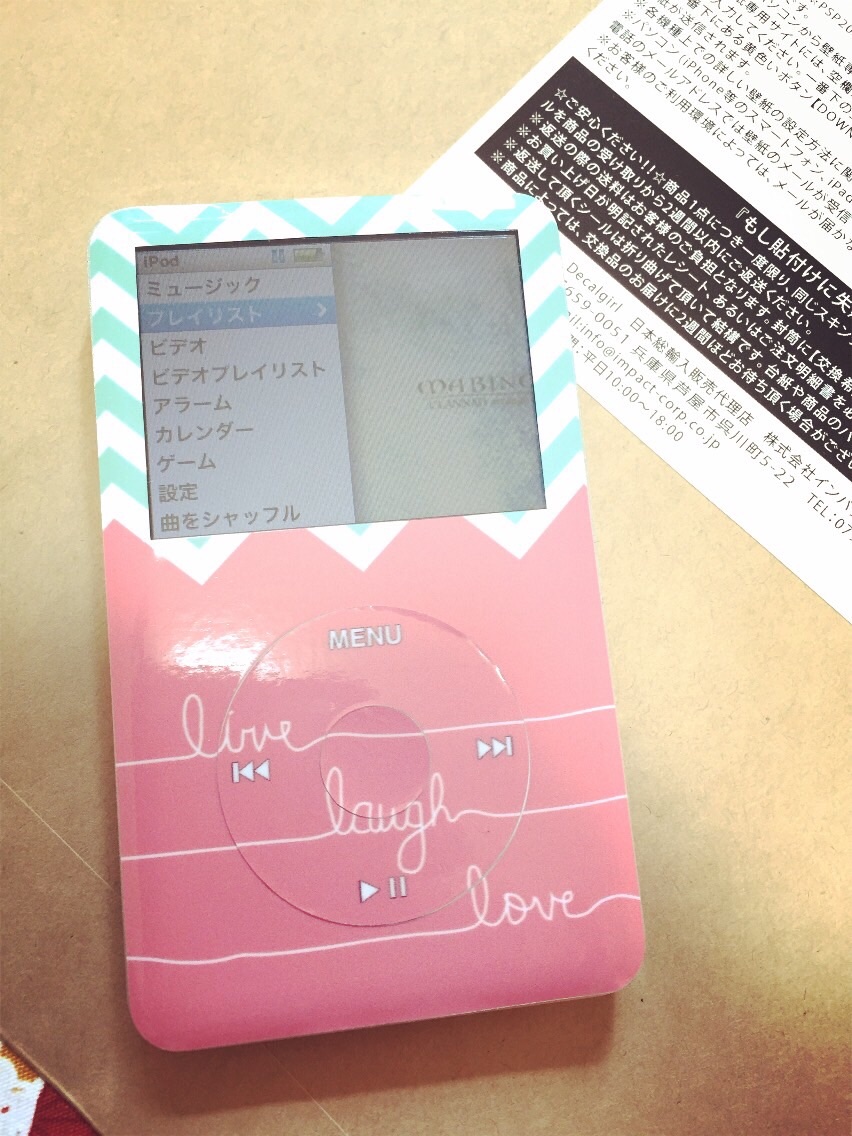 iPod
ミュージック
プレイリスト
ビデオ
ビデオプレイリスト
アラーム
カレンダー
ゲーム
設定
曲をシャッフル
MENU
live
laugh
love
PSP20
です。
※パソコンから壁紙専
用専用サイトには、空欄
入力してください。一番下の
番下にある黄色いボタン【DOWN
紙が送信されます。
※各機種上での詳しい壁紙の設定方法に関
※パソコン(iPhone等のスマートフォン、iPad
電話のメールアドレスでは壁紙のメールが受信
※お客様のご利用環境によっては、メールが届かな
ください。
『もし貼付けに失
☆ご安心ください!!☆商品1点につき一度限り、同じスキン
ルを商品の受け取りから2週間以内にご返送ください。
※返送の際の送料はお客様のご負担となります。封筒に【交換希
※お買い上げ日が明記されたレシート、あるいはご注文明細書を必
※返送して頂くシールは折り曲げて頂いて結構です。台紙や商品のパ
※商品によっては、交換品のお届けに2週間ほどお待ち頂く場合がござい
Decalgirl 日本総輸入販売代理店 株式会社インパ
659-0051 兵庫県芦屋市呉川町5-22 TEL:07
ail:info@impact-corp.co.jp
間:平日10:00~18:00